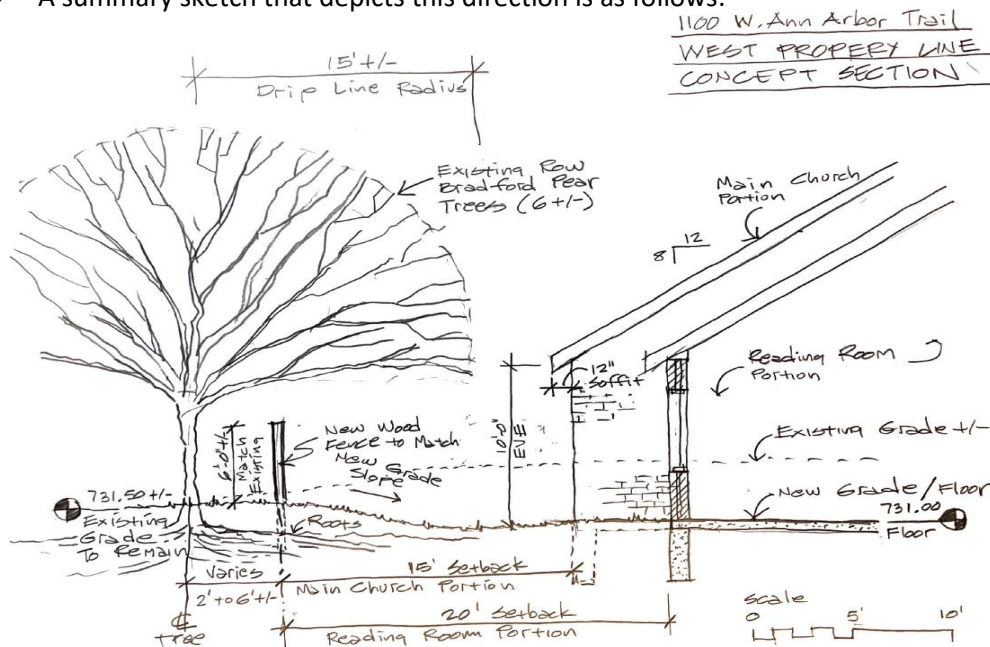 A summary sketch that depicts this direction is as follows:
1100 W. Ann Arbor Trail
WEST PROPERY LINE
CONCEPT SECTION
15' +/-
Drip Line Radius
Existing Row
Bradford Pear
Trees (6 +/-)
Main Church
Portion
12
8
12"
Soffit
Reading Room
Portion
10'-0"
EVE
6'-0" +/-
Match
Existing
New Wood
Fence to Match
New Grade
Slope
Existing Grade +/-
731.50 +/-
Existing
Grade
To Remain
Roots
New Grade/Floor
731.00
Floor
Varies
2' to 6' +/-
15' Setback
Main Church Portion
20' Setback
Reading Room Portion
℄
tree
scale
0 5' 10'